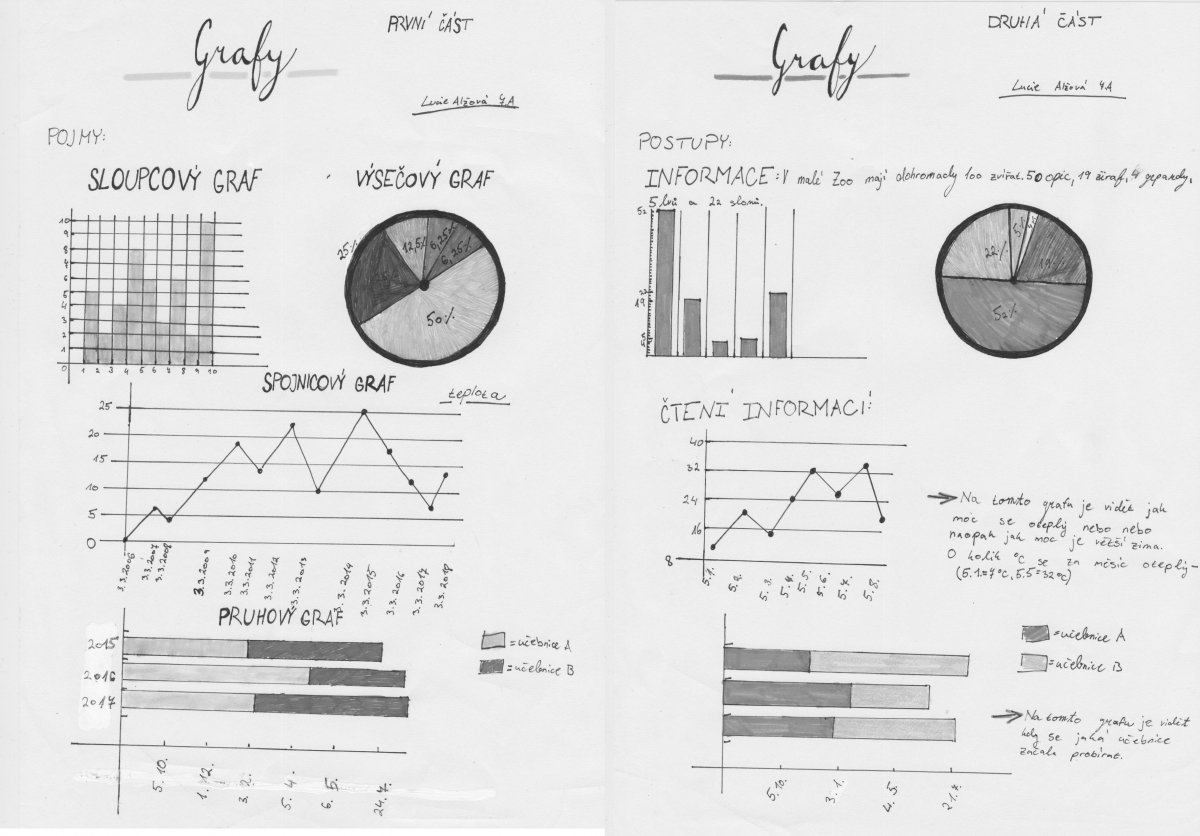 PRVNÍ ČÁST
Grafy
Lucie Alžová 4.A
POJMY:
SLOUPCOVÝ GRAF
VÝSEČOVÝ GRAF
10
9
8
7
6
5
4
3
2
1
0
0 1 2 3 4 5 6 7 8 9 10
25%
12,5%
6,25%
6,25%
50%
SPOJNICOVÝ GRAF
teplota
25
20
15
10
5
0
3.3.2006
3.3.2007
3.3.2008
3.3.2009
3.3.2010
3.3.2011
3.3.2012
3.3.2013
3.3.2014
3.3.2015
3.3.2016
3.3.2017
3.3.2018
PRUHOVÝ GRAF
2015
2016
2017
=učebnice A
=učebnice B
5.10.
1.12.
3.2.
5.4.
6.5.
24.7.
DRUHÁ ČÁST
Grafy
Lucie Alžová 4.A
POSTUPY:
INFORMACE: V malé Zoo mají dohromady 100 zvířat. 50 opic, 19 žiraf, 4 gepardy,
5 lvů a 22 slonů.
52
22
19
5
22%
5%
19%
52%
ČTENÍ INFORMACÍ:
40
32
24
16
8
5.1.
5.2.
5.3.
5.4.
5.5.
5.6.
5.7.
5.8.
Na tomto grafu je vidět jak
moc se oteplý nebo nebo
naopak jak moc je větší zima.
O kolik °C se za měsíc oteplý-
(5.1.=7°C, 5.5=32°C)
=učebnice A
=učebnice B
5.10.
3.1.
4.5.
21.7.
Na tomto grafu je vidět
kdy se jaká učebnice
začala probírat.